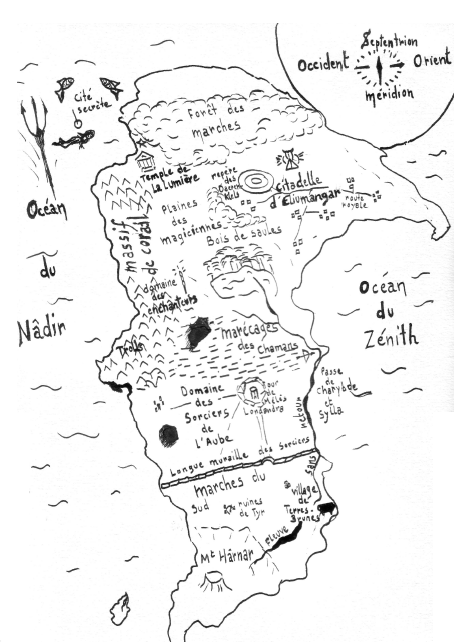 Septentrion
Occident
Orient
méridion
Cité
secrète
Forêt des
marches
Temple de
La Lumière
repère
des
Citadelle
d'Elumangar
route
royale
Plaines
des
magiciennes
Bois de saules
massif
de corail
Océan
du
Nâdir
domaine
des
enchanteurs
Océan
du
Zénith
Marécages
des Chamans
Trolls
Passe
de
Charybde
et
Sylla
Domaine
des
Sorciers
de
L'Aube
Tour
de
Mélès
Londandra
Longue muraille des Sorciers
marches du
Sud
ruines
de Tyr
village
de
Terres-
Brunes
fleuve
sans
retour
Mt Hârnar